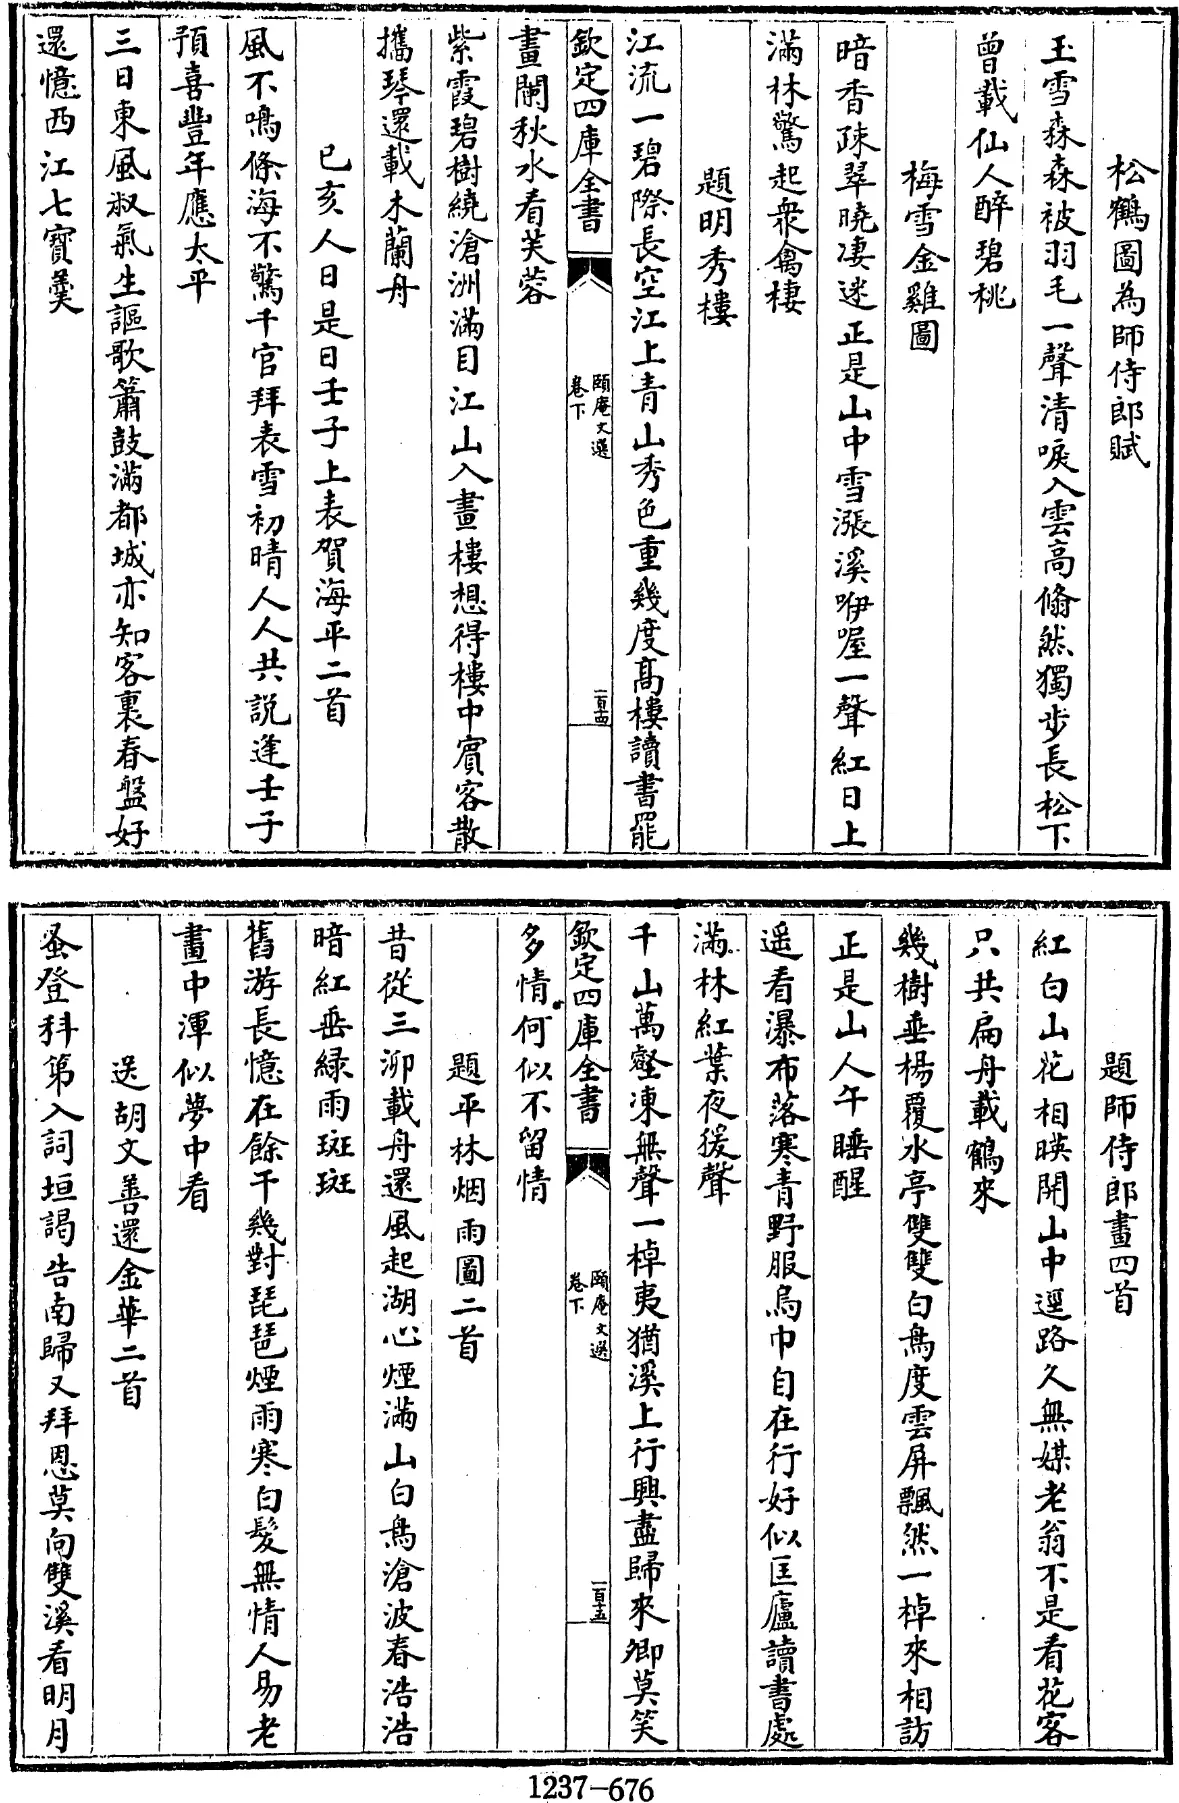 松鶴圖為師侍郎賦
玉雪森森被羽毛一聲清唳入雲高翛然獨步長松下
曾載仙人醉碧桃
梅雪金雞圖
暗香疎翠曉凄迷正是山中雪漲溪咿喔一聲紅日上
滿林驚起衆禽棲
題明秀樓
江流一碧際長空江上青山秀色重幾度髙樓讀書罷
欽定四庫全書
頤庵文選
卷下
一百十四
畫闌秋水看芙蓉
紫霞碧樹繞滄洲滿目江山入畫樓想得樓中賓客散
攜琴還載木蘭舟
已亥人日是日壬子上表賀海平二首
風不鳴條海不驚千官拜表雪初晴人人共說逢壬子
預喜豐年應太平
三日東風淑氣生謳歌簫鼓滿都城亦知客裏春盤好
還憶西江七寶羹
題師侍郎畫四首
紅白山花相暎開山中逕路久無媒老翁不是看花客
只共扁舟載鶴來
幾樹垂楊覆水亭雙雙白鳥度雲屏飄然一棹來相訪
正是山人午睡醒
遥看瀑布落寒青野服烏巾自在行好似匡廬讀書處
滿林紅葉夜猨聲
千山萬壑凍無聲一棹夷猶溪上行興盡歸來卿莫笑
欽定四庫全書
頤庵文選
卷下
一百十五
多情何似不留情
題平林烟雨圖二首
昔從三泖載舟還風起湖心煙滿山白鳥滄波春浩浩
暗紅垂緑雨斑斑
舊游長憶在餘干幾對琵琶煙雨寒白髮無情人易老
畫中渾似夢中看
送胡文善還金華二首
蚤登科第入詞垣謁告南歸又拜恩莫向雙溪看明月
1237-676